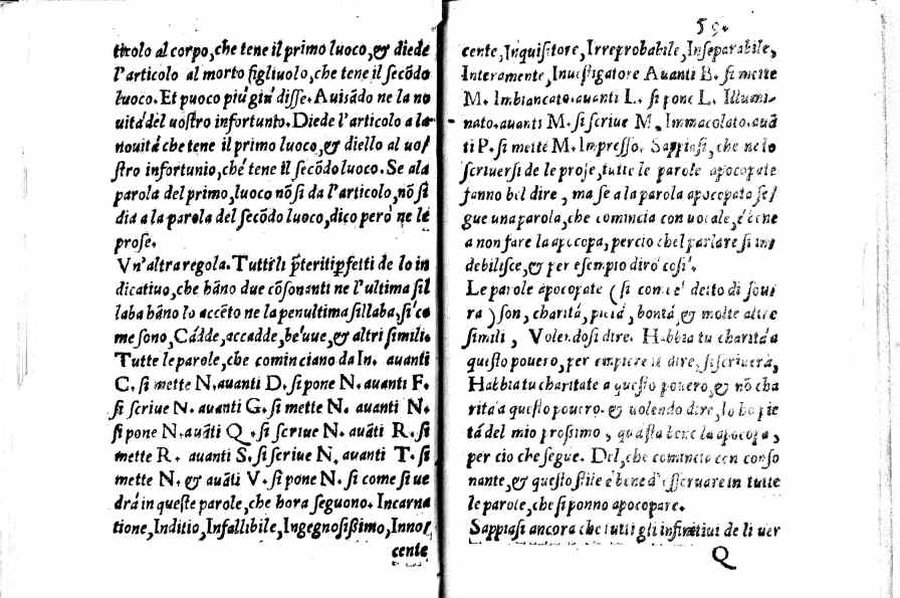 ticolo al corpo, che tene il primo luoco, & diede
l'articolo al morto figliuolo, che tene il secōdo
luoco. Et puoco piu giu disse. Auisādo ne la no
uità del uostro infortunto. Diede l'articolo a la
nouità che tene il primo luoco, & diello al uo/
stro infortunio, chè tene il secōdo luoco. Se ala
parola del primo, luoco nō si da l'articolo, nō si
dia a la parola del secōdo luoco, dico però ne le
prose.
Vn'altra regola. Tutti li p̄teriti p̄fetti de lo in
dicatiuo, che hāno due cōsonanti ne l'ultima sil
laba hāno lo accēto ne la penultima sillaba, si co
me sono, Cádde, accadde, béuue, & altri simili.
Tutte le parole, che cominciano da In. auanti
C. si mette N. auanti D. si pone N. auanti F.
si scriue N. auanti G. si mette N. auanti N.
si pone N. auāti Q. si scriue N. auāti R. si
mette R. auanti S. si scriue N. auanti T. si
mette N. & auāti V. si pone N. si come si ue
drà in queste parole, che hora seguono. Incarna
tione, Inditio, Infallibile, Ingegnosißimo, Inno/
cente
59.
cente, Inquisitore, Irreprobabile, Inseparabile,
Interamente, Inuestigatore Auanti B. si mette
M. Imbiancato. auanti L. si pone L. Illumi-
nato. auanti M. si scriue M. Immacolato. auā
ti P. si mette M. Impresso. Sappiasi, che ne lo
scriuersi de le prose, tutte le parole apocopate
fanno bel dire, ma se a la parola apocopata se/
gue una parola, che comincia con uocale, è bene
a non fare la apocopa, percio che'l parlare si in
debilisce, & per esempio dirò così.
Le parole apocopate (si come è detto di soui
ra) son, charità, pietà, bontà, & molte altre
simili, Volendosi dire. Habbia tu charità a
questo pouero, per empiere il dire, si scriuerà,
Habbia tu charitate a questo pouero, & nō cha
rità a questo pouero. & uolendo dire, Io ho pie
tà del mio prossimo, quà sta bene la apocopa,
per cio che segue. Del, che comincia con conso
nante, & questo stile è bene d'osseruare in tutte
le parole, che si ponno apocopare.
Sappiasi ancora che tutti gli infinitiui de li uer
Q